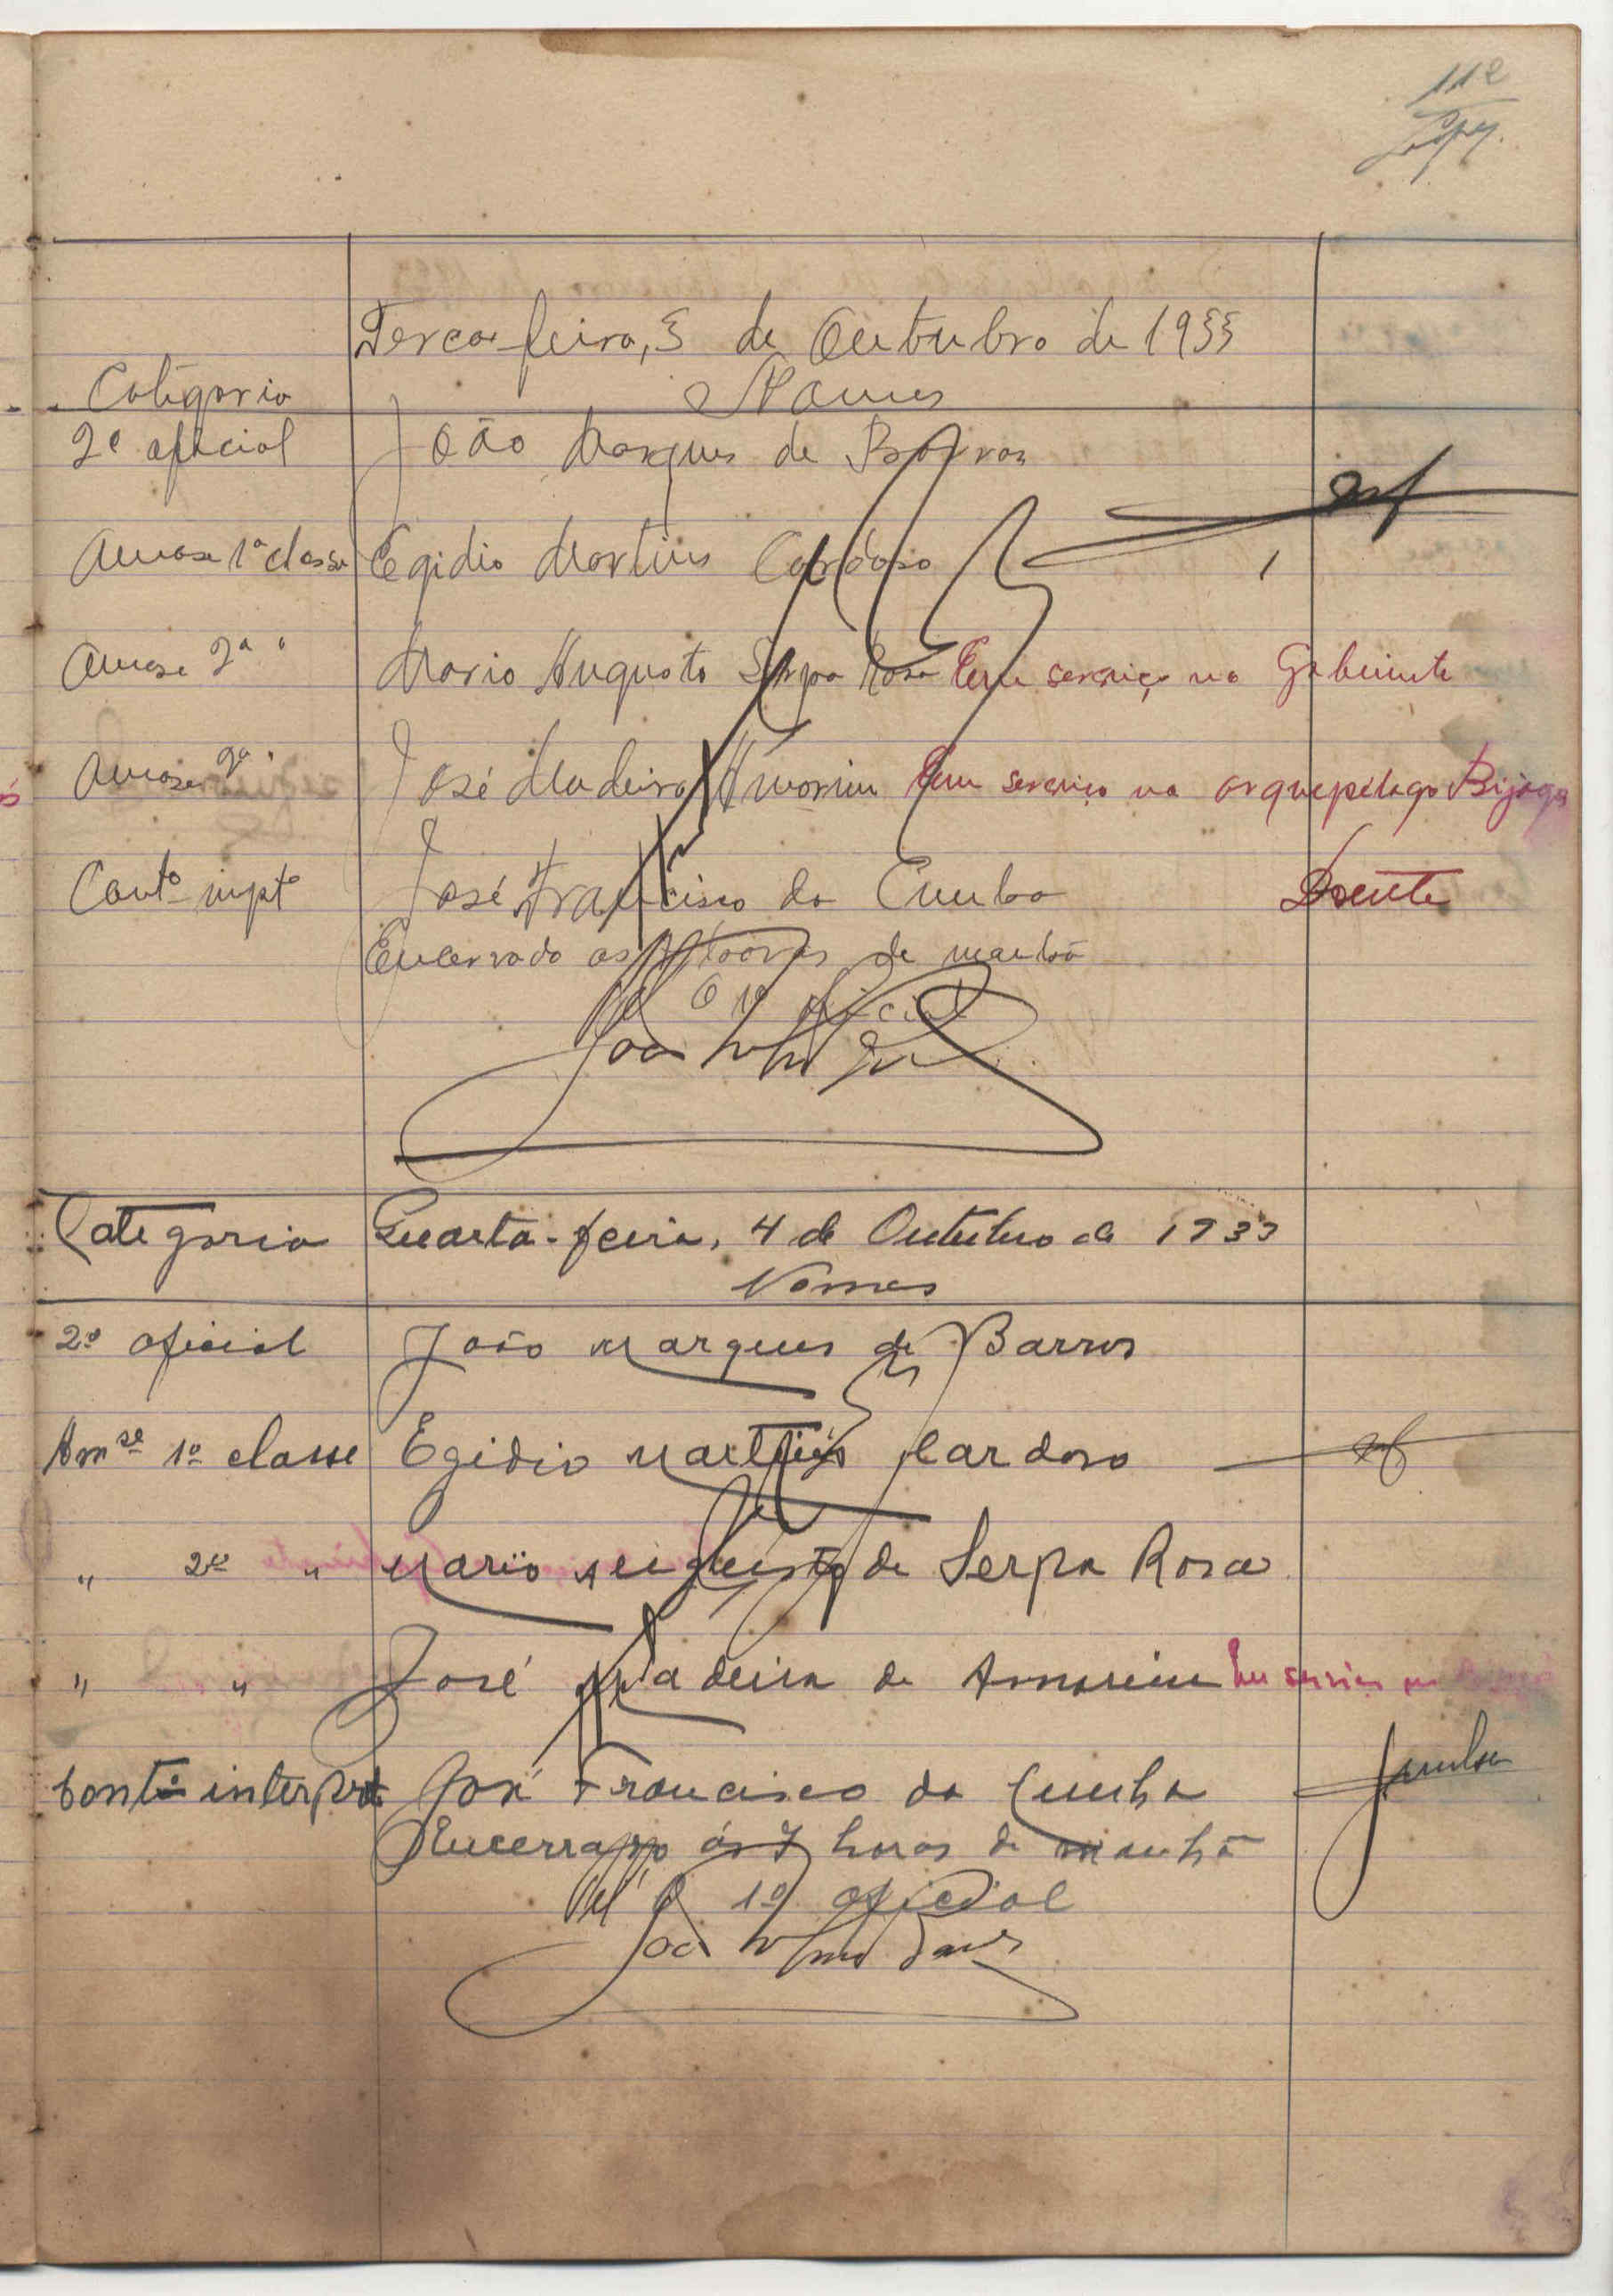 112
Terca-feira, 3 de Outubro de 1933
Categoria Nomes
2º oficial João Marques de Barros
Amase 1ª classe Egidio Martins Cardoso
Amase 2ª " Mario Augusto Serpa Rosa Em serviço no Gabinete
Amase 2ª " José Madeira Amorim Em serviço no arquepélago Bijagos
Contº intptº José Francisco da Cunha Doente
Encerrado as horas da manhã
O 1º oficial
João
Categoria Quarta-feira, 4 de Outubro de 1933
Nomes
2º oficial João Marques de Barros
Amse 1ª classe Egidio Martins Cardoso
" 2ª " Mario Augusto de Serpa Rosa
" " José Madeira de Amorim Em serviço
Contº interpt José Francisco da Cunha JCunha
Encerrado ás 7 horas da manhã
O 1º oficial
João